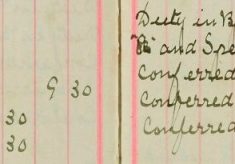 Duty in
and Spe
9 30
Conferred
Conferred
30
Conferred
30